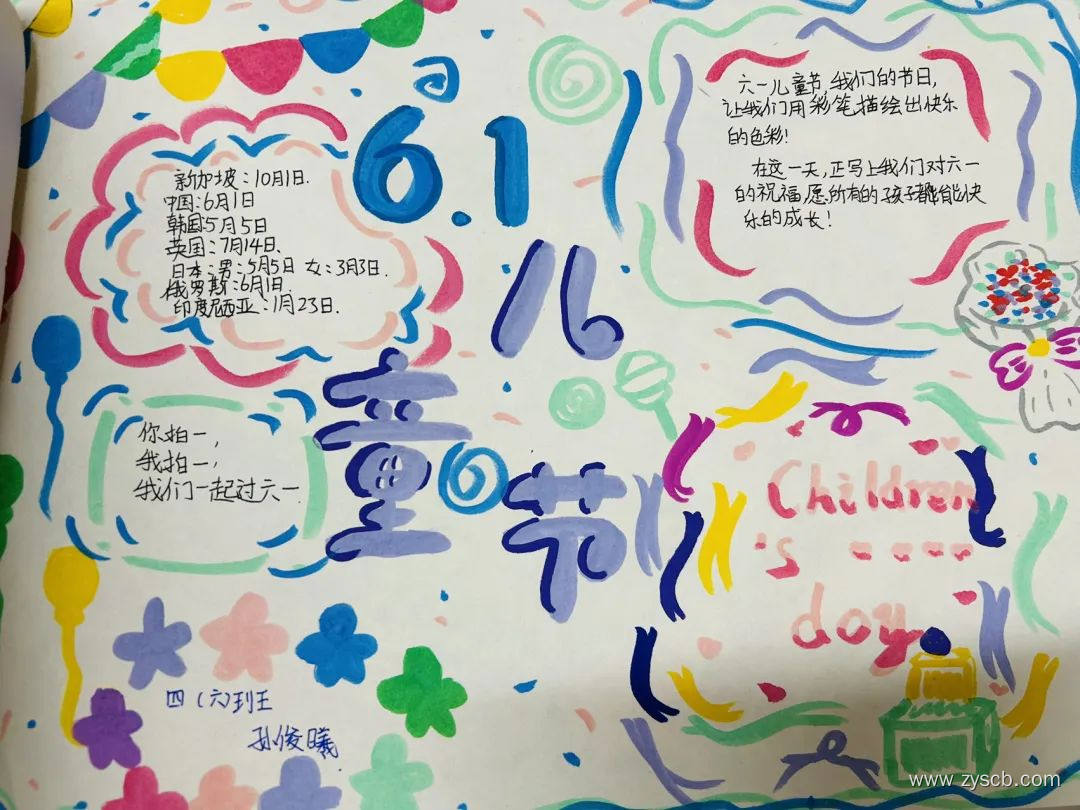 6.1
儿
童节
新加坡：10月1日.
中国：6月1日
韩国5月5日
英国：7月14日.
日本：男：5月5日 女：3月3日.
俄罗斯：6月1日.
印度尼西亚：1月23日.
六一儿童节,我们的节日,
让我们用彩笔描绘出快乐
的色彩!
在这一天,正写上我们对六一
的祝福,愿所有的孩子都能快
乐的成长!
你拍一,
我拍一,
我们一起过六一
Children
's
day
四(六)班
孙俊曦
www.zyscb.com